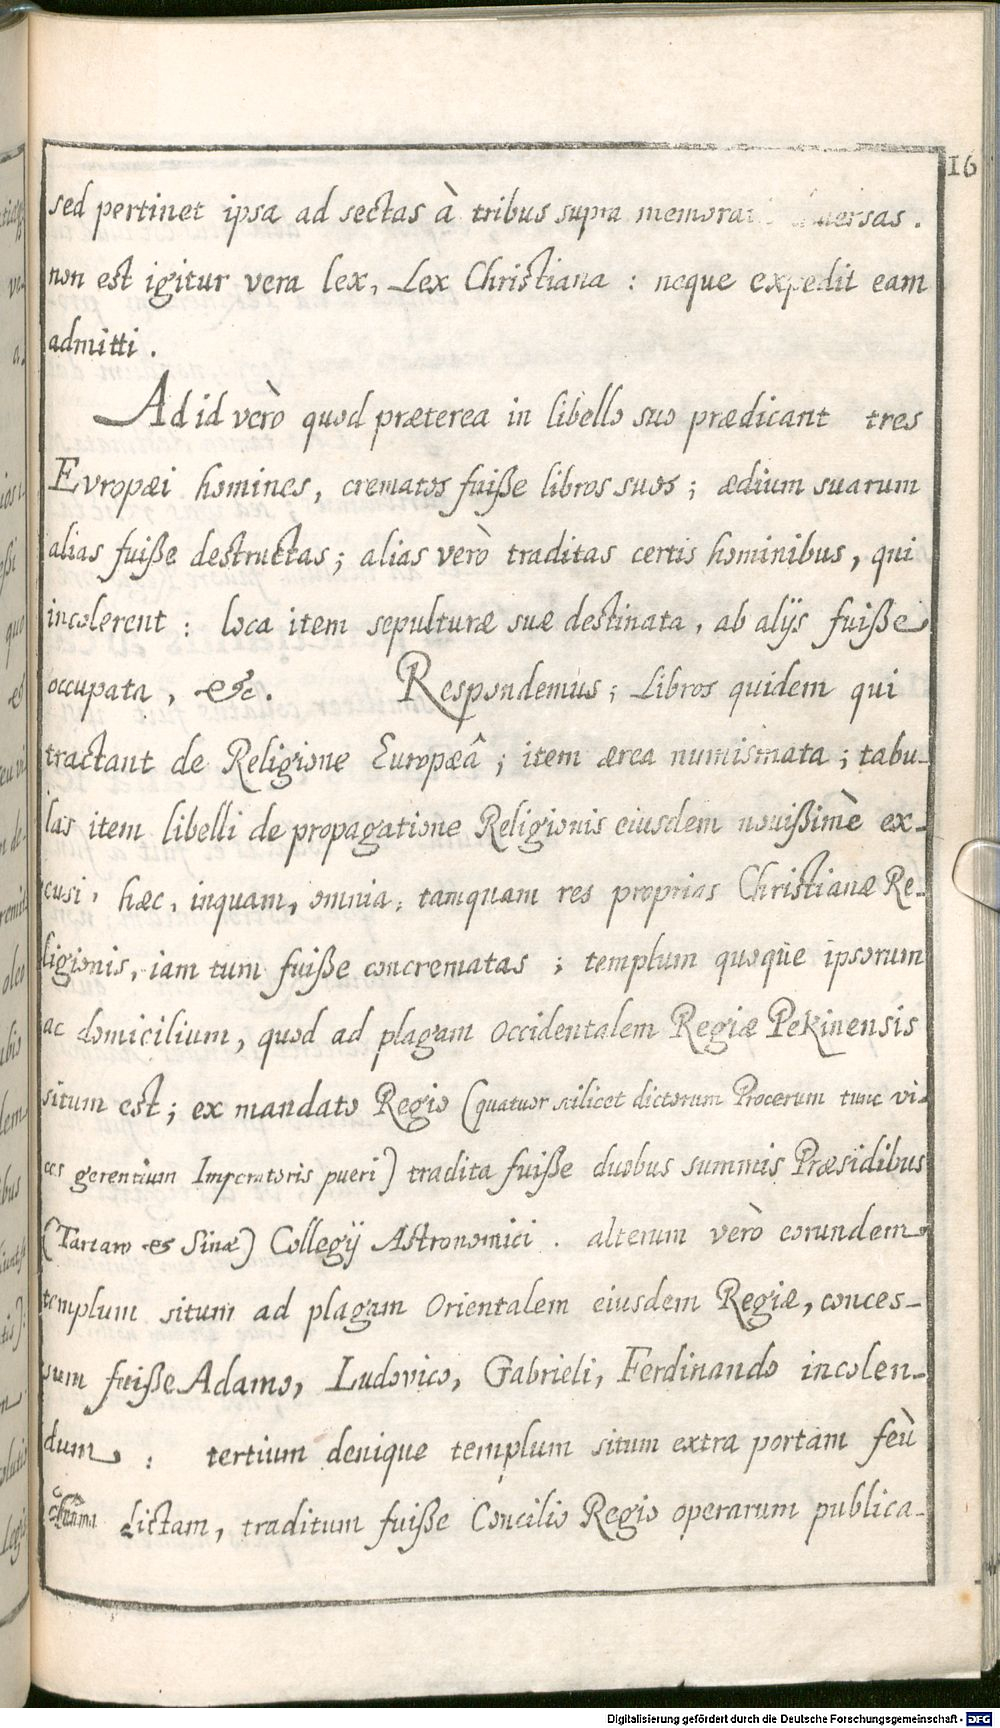 16
sed pertinet ipsa ad sectas à tribus supra memorat diversas.
non est igitur vera lex, Lex Christiana : neque expedit eam
admitti.
Ad id verò quod præterea in libello suo prædicant tres
Evropæi homines, crematos fuiße libros suos; ædium suarum
alias fuiße destructas; alias verò traditas certis hominibus, qui
incolerent : loca item sepulturæ suæ destinata, ab alijs fuiße
occupata, &c. Respondemus; Libros quidem qui
tractant de Religione Europæâ; item ærea numismata; tabu-
las item libelli de propagatione Religionis eiusdem nouißimè ex-
cusi, hæc, inquam, omnia, tamquam res proprias Christianæ Re-
ligionis, iam tum fuiße concrematas; templum quoque ipsorum
ac domicilium, quod ad plagam Occidentalem Regiæ Pekinensis
situm est; ex mandato Regio (quatuor scilicet dictorum Procerum tunc vi-
ces gerentium Imperatoris pueri) tradita fuiße duobus summis Præsidibus
(Tartaro et Sinæ) Collegij Astronomici. alterum verò eorundem
templum situm ad plagam Orientalem eiusdem Regiæ, conces-
sum fuiße Adamo, Ludovico, Gabrieli, Ferdinando incolen-
dum : tertium denique templum situm extra portam feù
dictam, traditum fuiße Concilio Regio operarum publica-
Digitalisierung gefördert durch die Deutsche Forschungsgemeinschaft - DFG